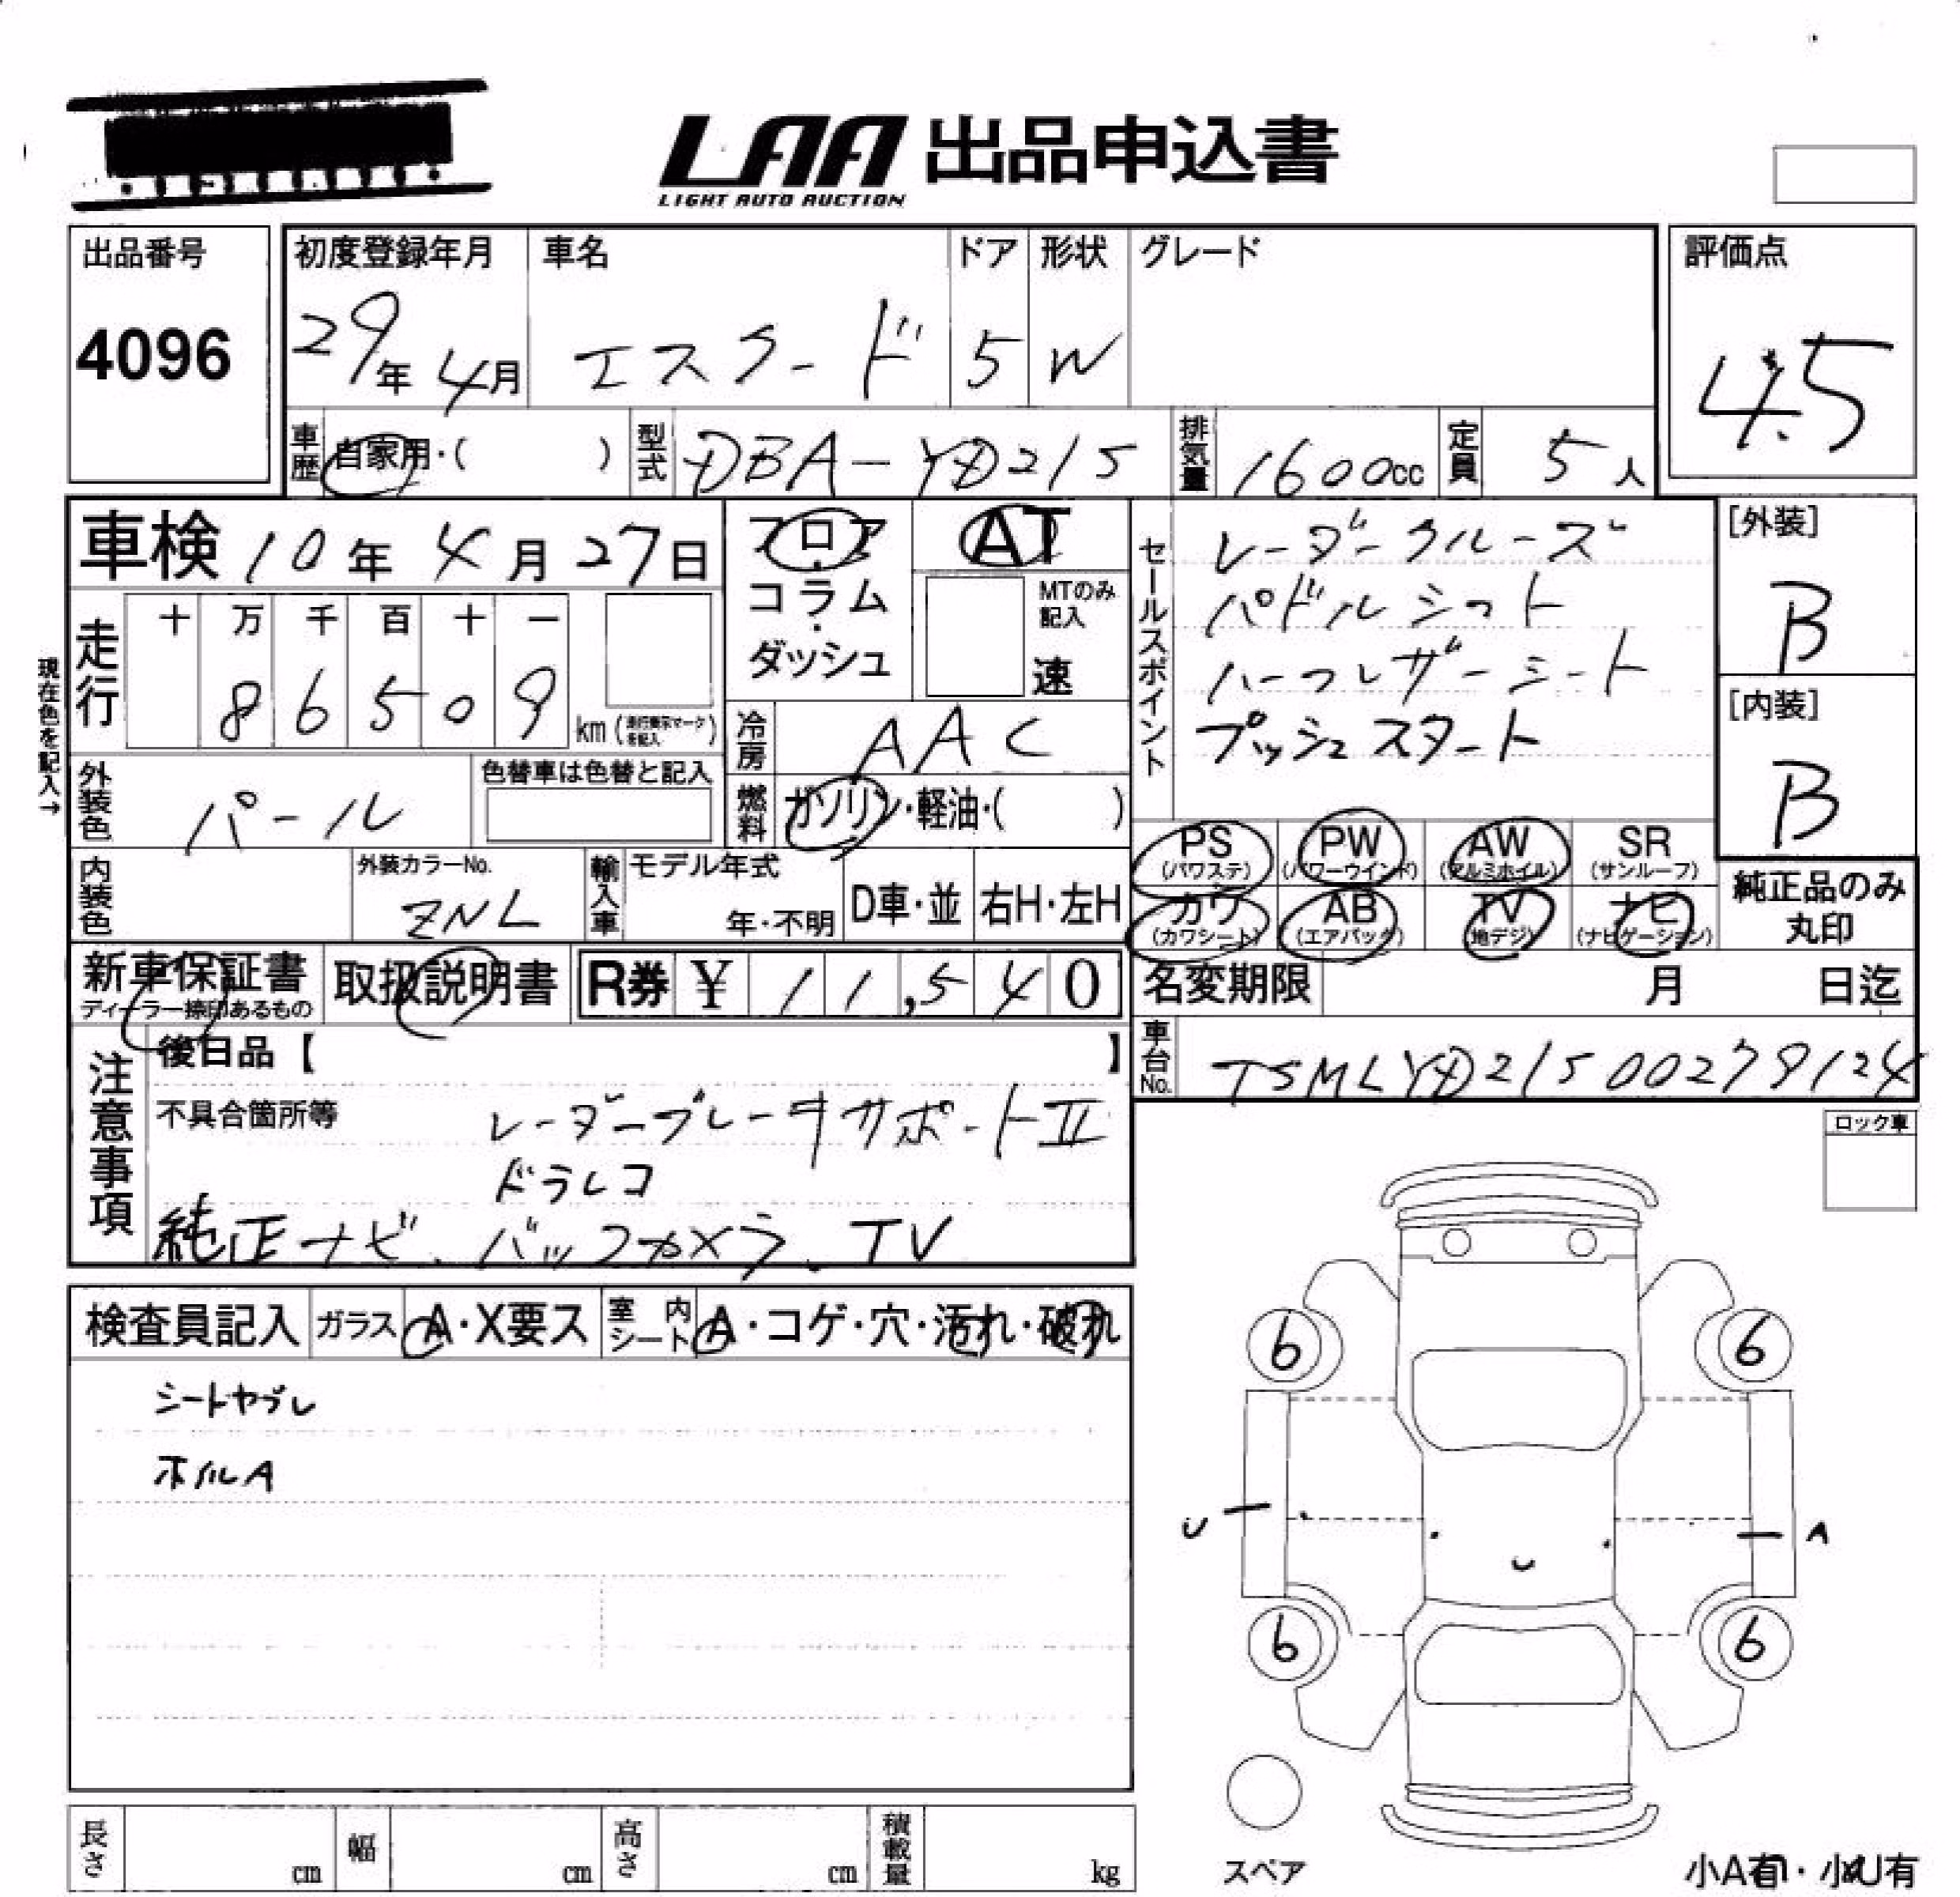 LAA 出品申込書
LIGHT AUTO AUCTION
出品番号
4096
初度登録年月 車名 ドア 形状 グレード
29年 4月 エスクード 5 W
評価点
4.5
車歴 自家用・( ) 型式 DBA-YD21S 排気量 1600cc 定員 5人
車検 10年 4月 27日
フロア・コラム・ダッシュ
AT
MTのみ記入
速
走行 十 万 千 百 十 一
8 6 5 0 9 km (走行表示マークを記入)
現在色を記入→
冷房 AAC
外装色 パール
色替車は色替と記入
燃料 ガソリン・軽油・( )
内装色
外装カラーNo.
ZNL
輸入車 モデル年式
年・不明 D車・並 右H・左H
セールスポイント
レーダークルーズ
パドルシフト
ハーフレザーシート
プッシュスタート
[外装]
B
[内装]
B
PS (パワステ) PW (パワーウインド) AW (アルミホイル) SR (サンルーフ)
カワ (カワシート) AB (エアバック) TV (地デジ) ナビ (ナビゲーション)
純正品のみ
丸印
新車保証書
ディーラー捺印あるもの
取扱説明書 R券 ¥ 11,540
名変期限 月 日迄
車台No. TSMLYD21S00279124
注意事項
後日品【 】
不具合箇所等 レーダーブレーキサポートII
ドラレコ
純正ナビ、バックカメラ、TV
ロック車
検査員記入 ガラス A・X要ス 室内シート A・コゲ・穴・汚れ・破れ
シートヤブレ
ホイルA
6 6
U A
U
6 6
スペア
小A有・小U有
長さ cm 幅 cm 高さ cm 積載量 kg